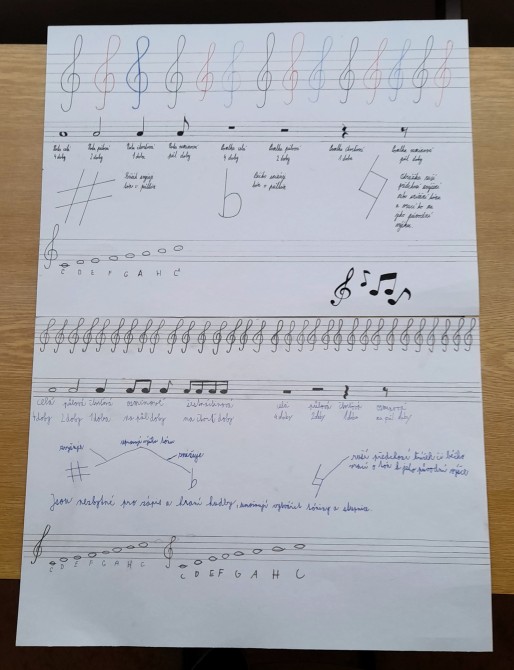 Nota celá Nota půlová Nota čtvrťová Nota osminová Pomlka celá Pomlka půlová Pomlka čtvrťová Pomlka osminová
4 doby 2 doby 1 doba půl doby 4 doby 2 doby 1 doba půl doby
Křížek zvyšuje
tón o půltón
Béčko snižuje
tón o půltón
Odrážka ruší
předchozí zvýšení
nebo snížení tónu
a vrací ho na
jeho původní
výšku.
C D E F G A H C
celá půlová čtvrťová osminové šestnáctinová celá půlová čtvrťová osminová
4 doby 2 doby 1 doba na půl doby na čtvrt doby 4 doby 2 doby 1 doba na půl doby
upravují výšku tónu
zvyšuje snižuje
ruší předchozí křížek či béčko
vrací o tón k jeho původní výšce
Jsou nezbytné pro zápis a hraní hudby, umožňují vytvářet tóniny a stupnice.
C D E F G A H C C D E F G A H C